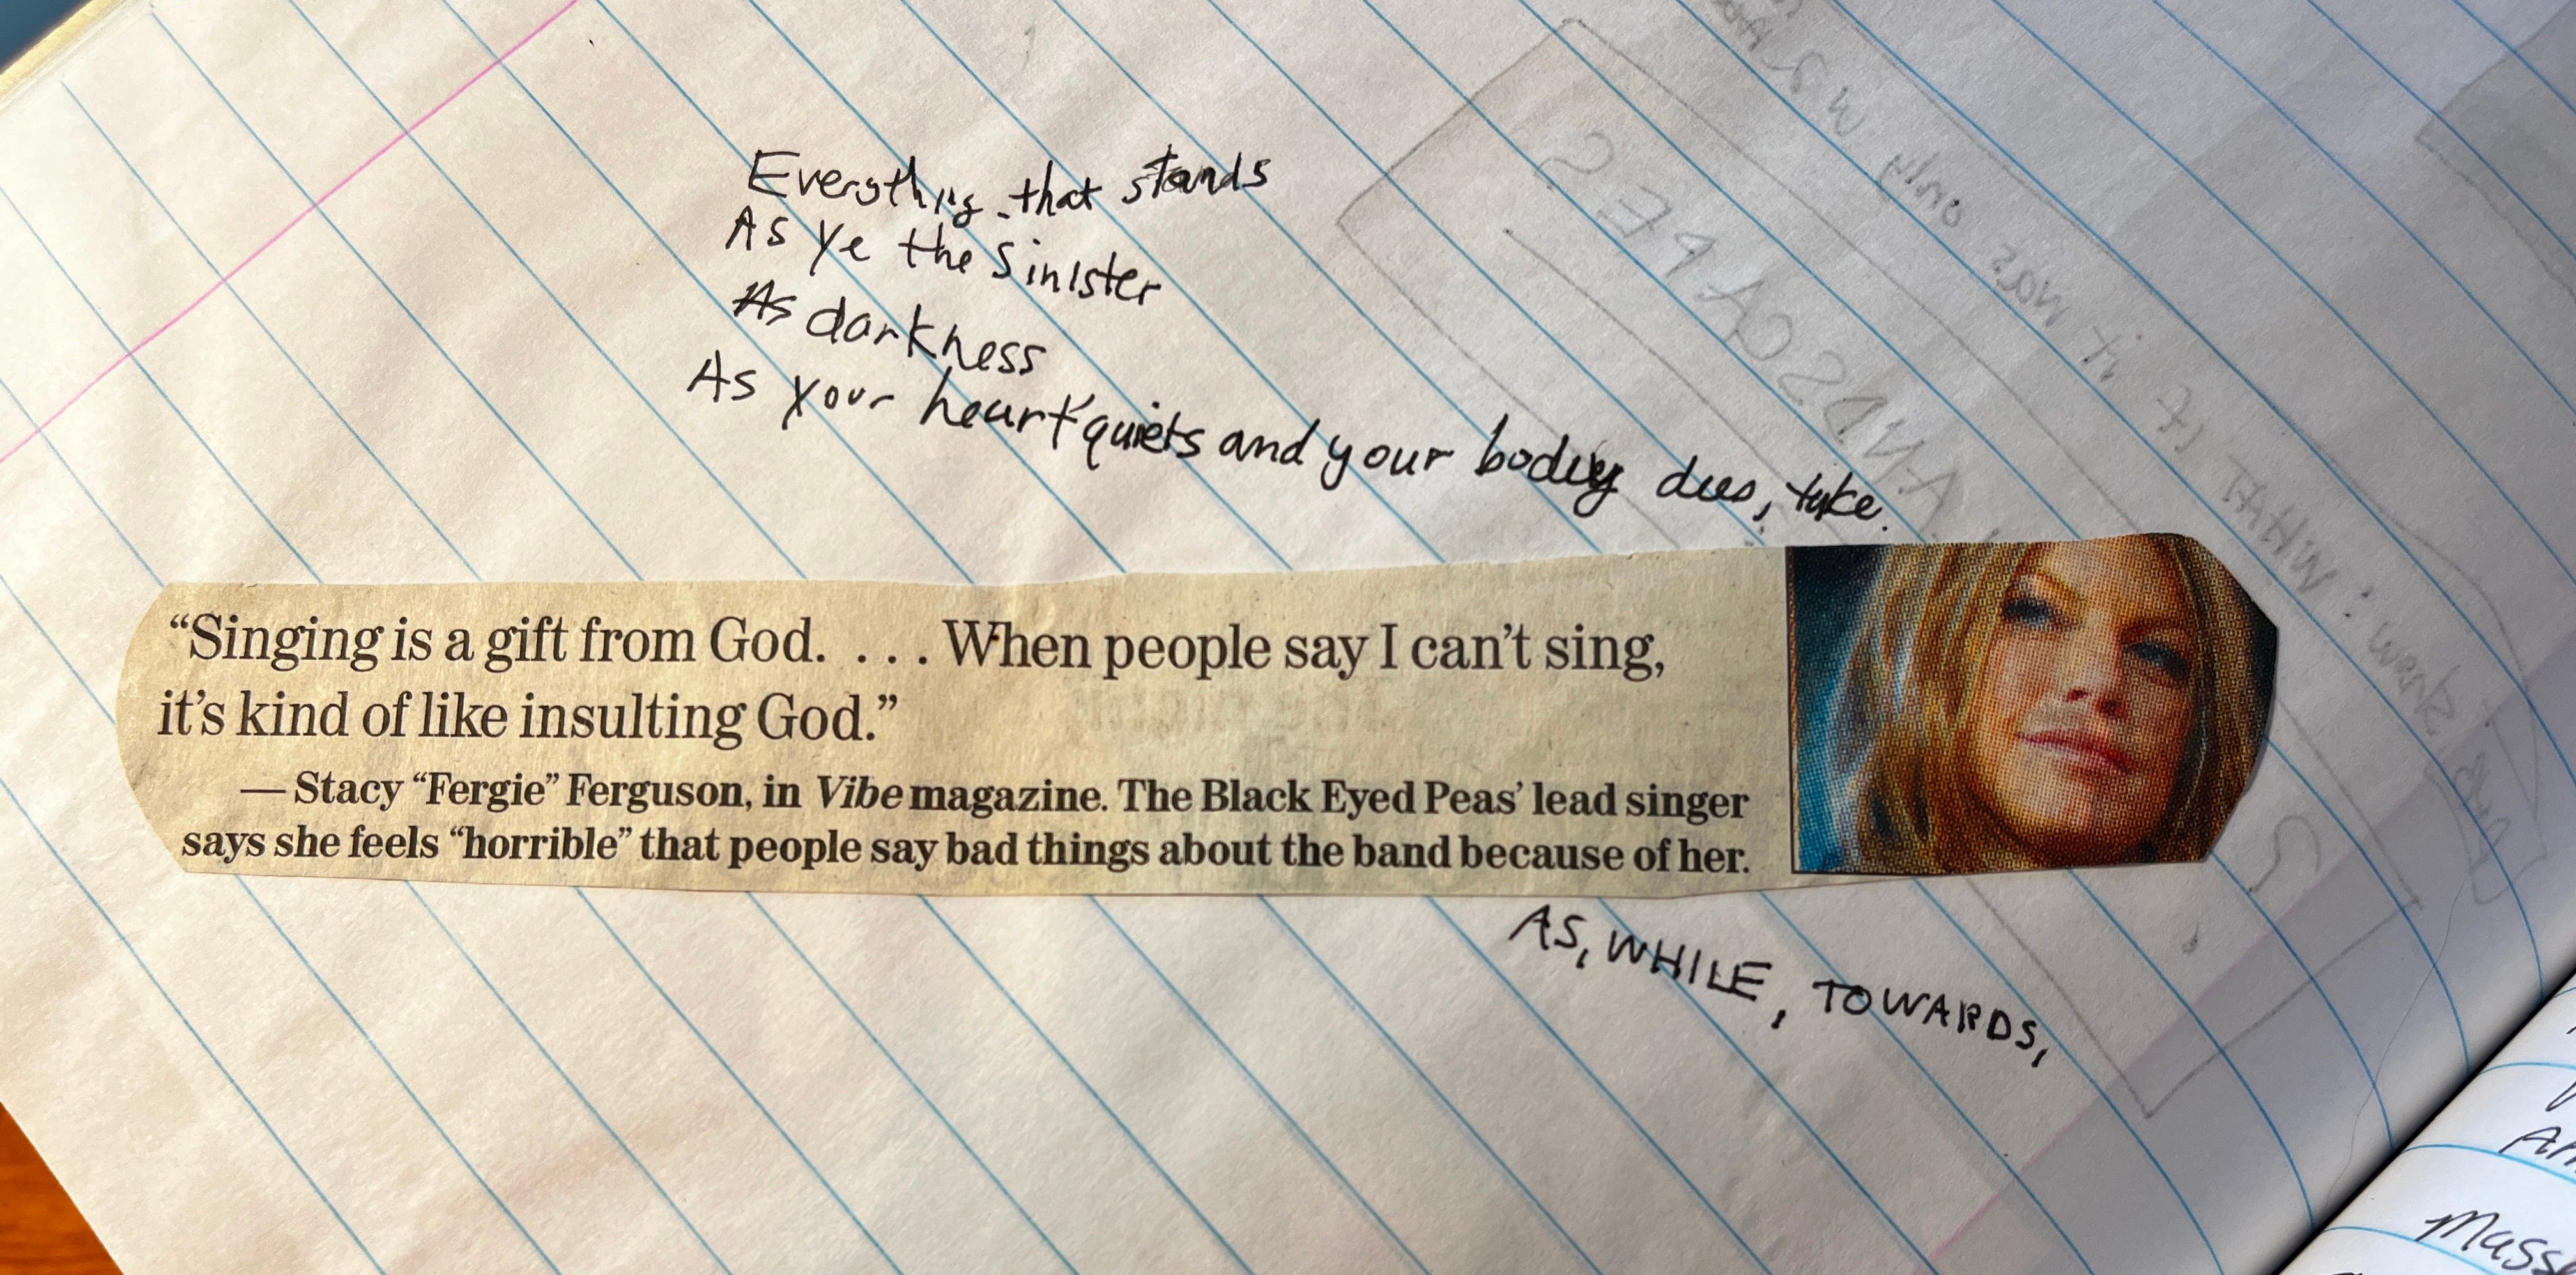 Everything that stands
As ye the sinister
As darkness
As your heart quiets and your body dies, take.
“Singing is a gift from God. . . . When people say I can’t sing,
it’s kind of like insulting God.”
— Stacy “Fergie” Ferguson, in Vibe magazine. The Black Eyed Peas’ lead singer
says she feels “horrible” that people say bad things about the band because of her.
AS, WHILE, TOWARDS,
WHAT if it was only